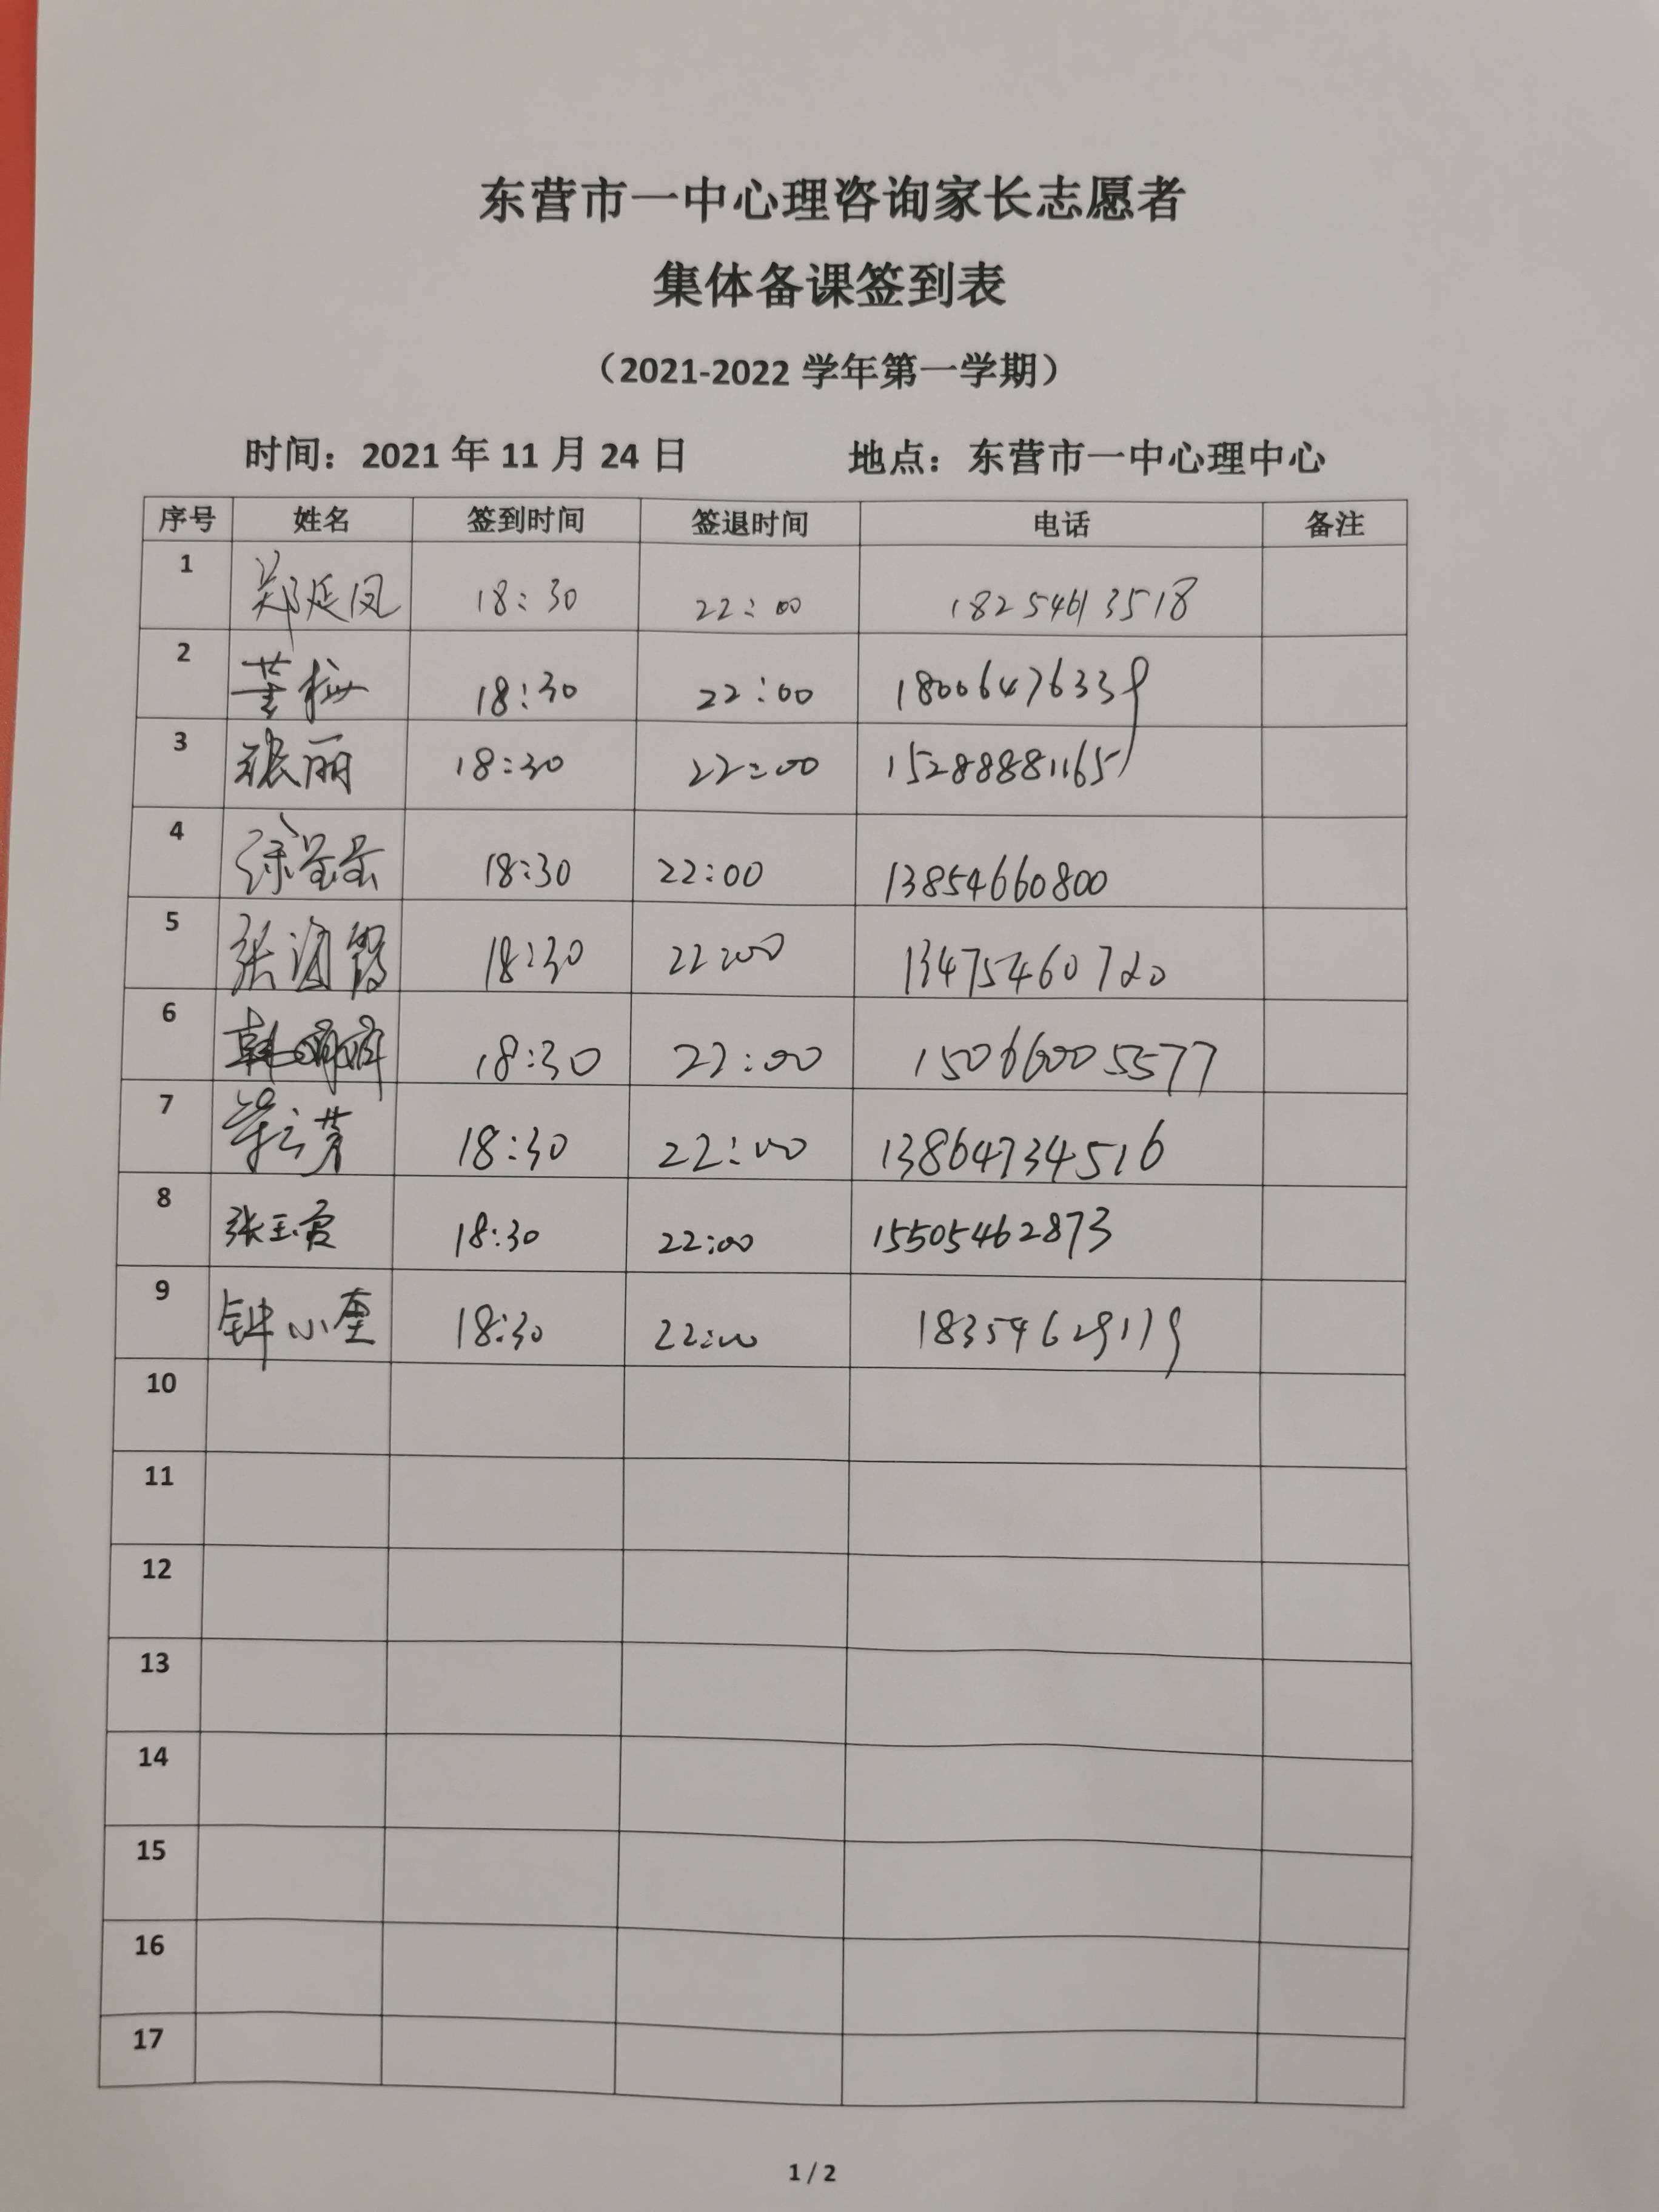 东营市一中心理咨询家长志愿者
集体备课签到表
（2021-2022 学年第一学期）
时间：2021 年 11 月 24 日 地点：东营市一中心理中心
序号 姓名 签到时间 签退时间 电话 备注
1 郑延凤 18:30 22:00 18254613518
2 董梅 18:30 22:00 18006476339
3 张丽 18:30 22:00 15288881165
4 18:30 22:00 13854660800
5 18:30 22:00 13475460720
6 18:30 22:00 15066005577
7 18:30 22:00 13864734516
8 张玉霞 18:30 22:00 15505462873
9 钟小奎 18:30 22:00 18354629119
10
11
12
13
14
15
16
17
1 / 2